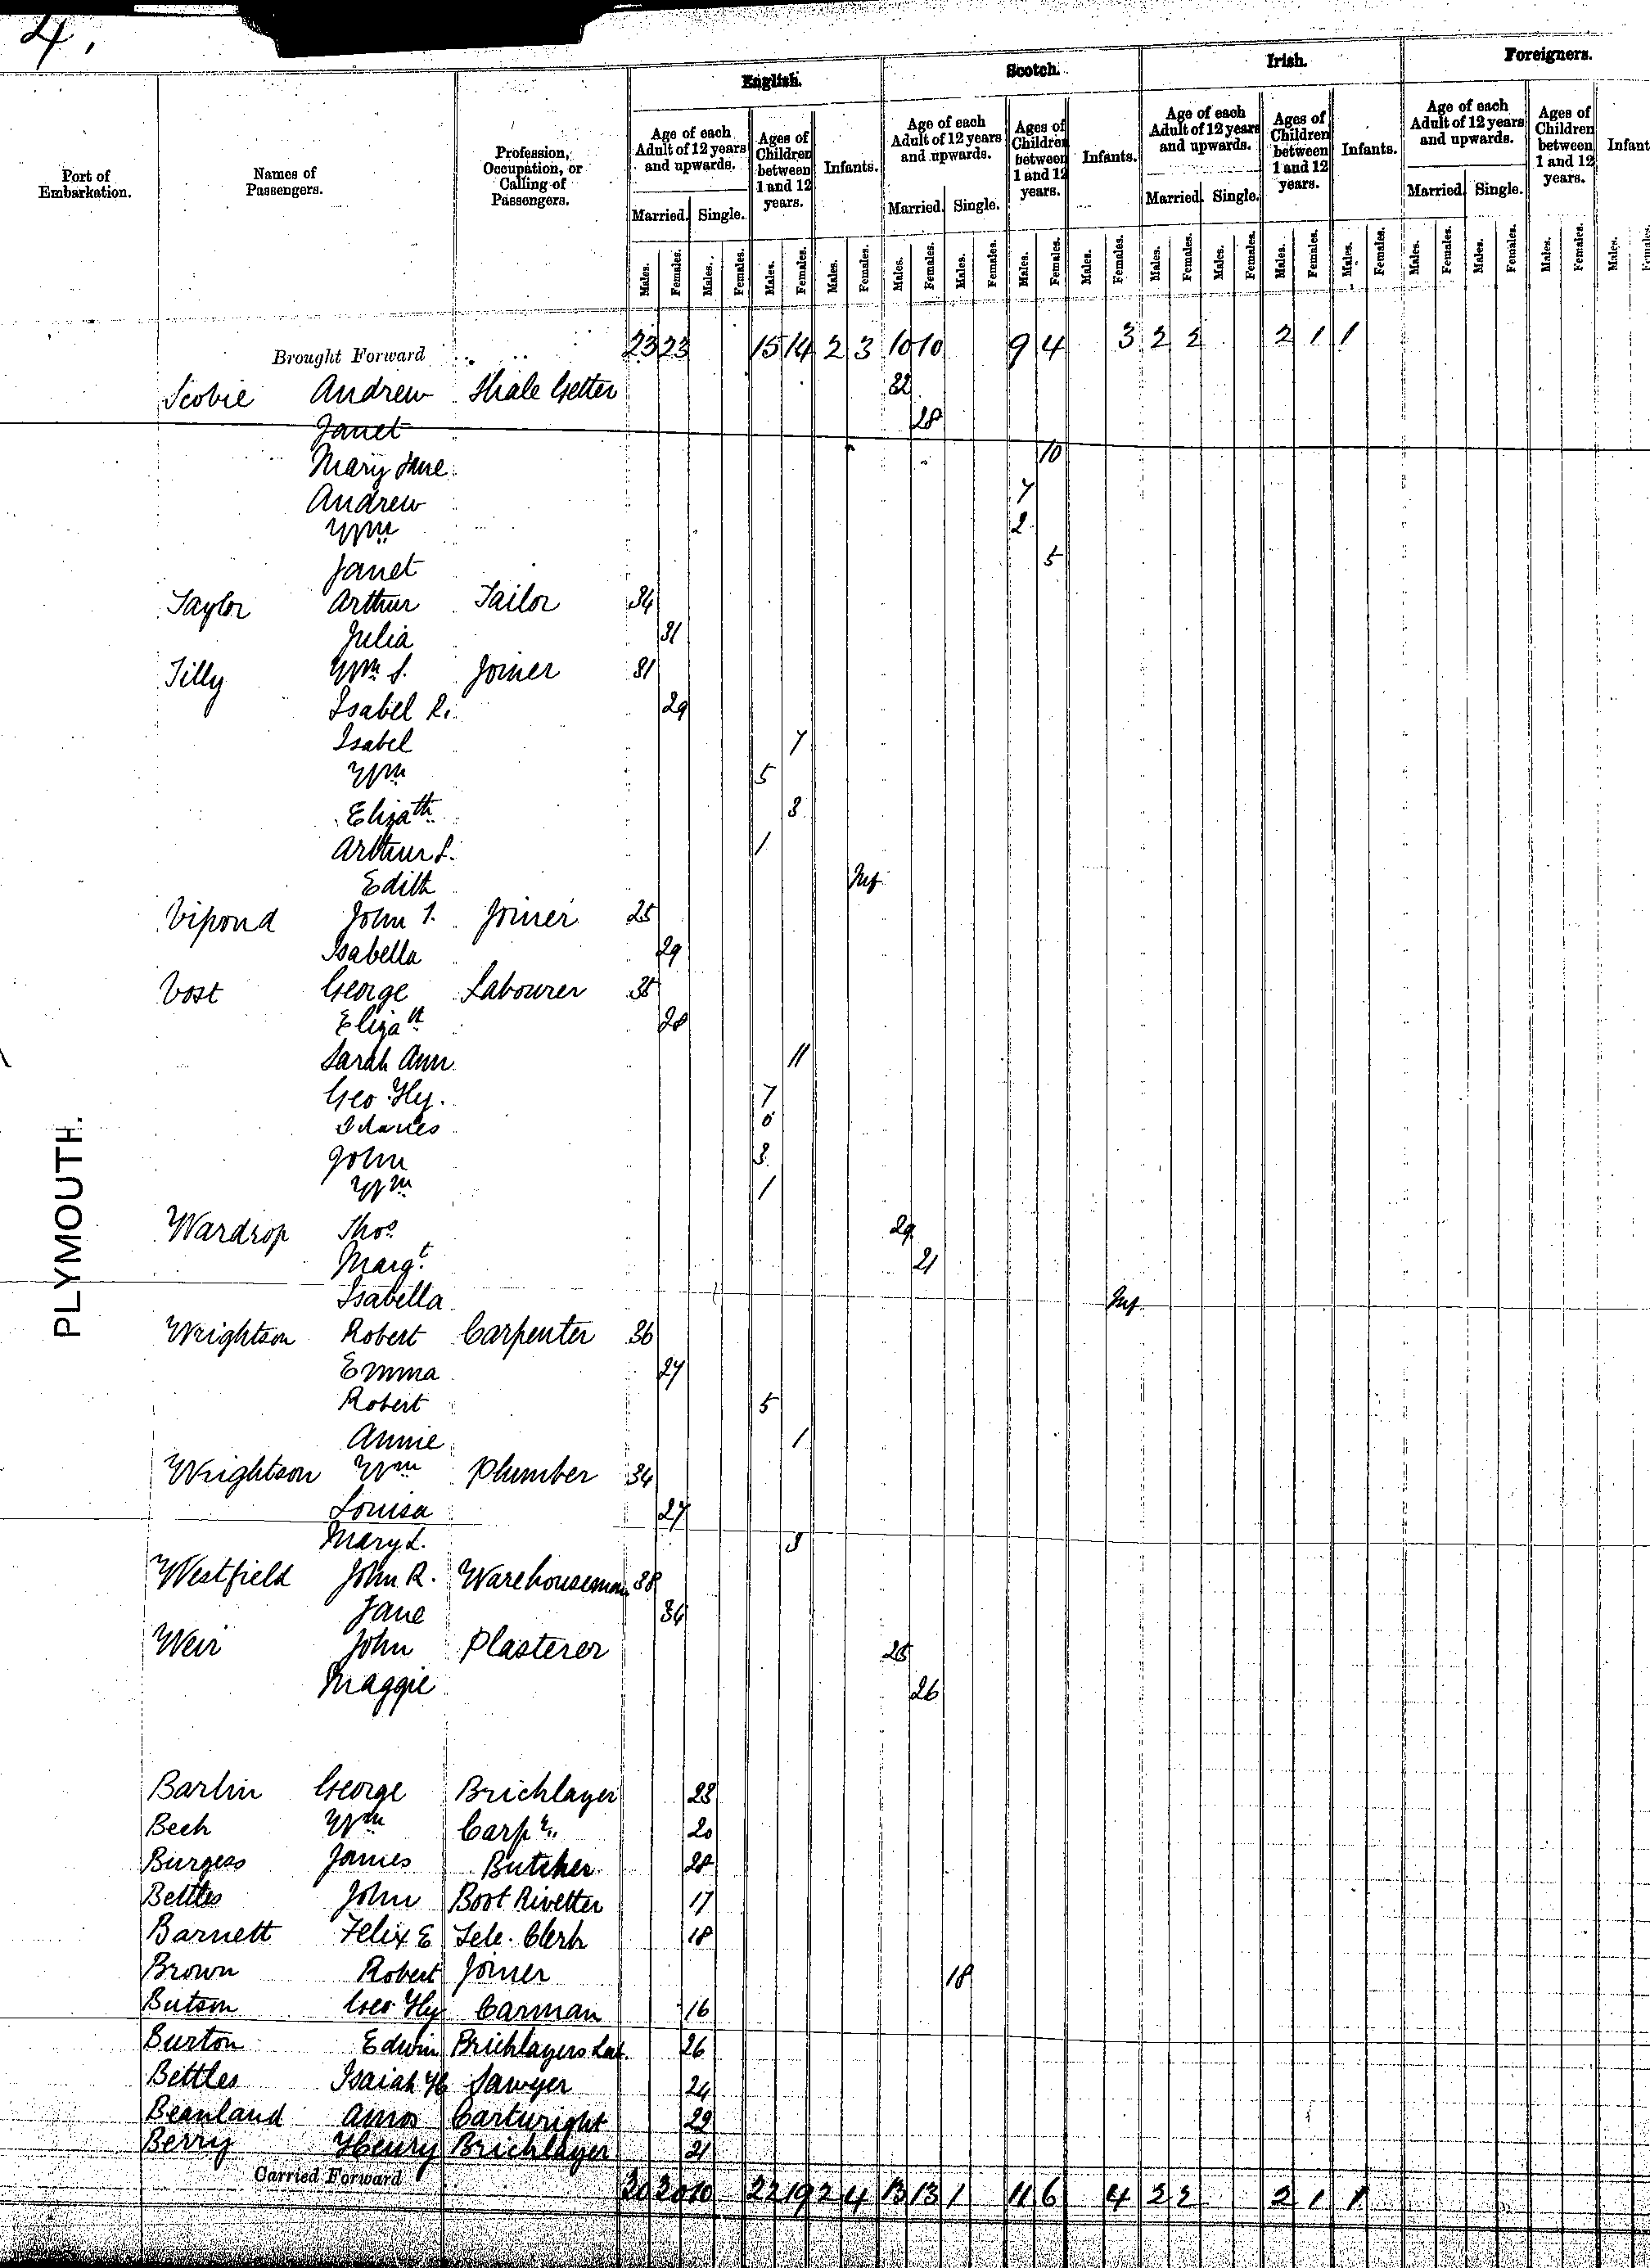 4,
English. Scotch. Irish. Foreigners.
Port of Embarkation. Names of Passengers. Profession, Occupation, or Calling of Passengers. Age of each Adult of 12 years and upwards. Ages of Children between 1 and 12 years. Infants. Age of each Adult of 12 years and upwards. Ages of Children between 1 and 12 years. Infants. Age of each Adult of 12 years and upwards. Ages of Children between 1 and 12 years. Infants. Age of each Adult of 12 years and upwards. Ages of Children between 1 and 12 years. Infant
Married. Single. Married. Single. Married. Single. Married. Single.
Males. Females. Males. Females. Males. Females. Males. Females. Males. Females. Males. Females. Males. Females. Males. Females. Males. Females. Males. Females. Males. Females. Males. Females. Males. Females. Males. Females. Males. Females. Males. Females.
Brought Forward 23 23 15 14 2 3 10 10 9 4 3 2 2 2 1 1
Scobie Andrew Shale Getter 32
Janet 28
Mary Jane 10
Andrew 7
Wm 2
Janet 5
Taylor Arthur Tailor 34
Julia 31
Tilly Wm S. Joiner 31
Isabel R. 29
Isabel 7
Wm 5
Elizath 3
Arthur S. 1
Edith Inf
Vipond John T. Joiner 25
Isabella 29
Vost George Labourer 35
Elizath 28
Sarah Ann 11
Geo Hy. 7
Charles
John 3
Wm 1
Wardrop Thos 29
Margt. 21
Isabella Inf
Wrightson Robert Carpenter 36
Emma 27
Robert 5
Annie 1
Wrightson Wm Plumber 34
Louisa 27
Mary L. 3
Westfield John R. Warehouseman 38
Jane 34
Weir John Plasterer 25
Maggie 26
PLYMOUTH.
Barlin George Bricklayer 23
Beck Wm Carpr. 20
Burgess James Butcher 28
Bettles John Boot Rivetter 17
Barnett Felix E Tele. Clerk 18
Brown Robert Joiner 18
Butson Geo Hy Carman 16
Burton Edwin Bricklayers Lab. 26
Bettles Isaiah H Sawyer 24
Beanland Amos Cartwright 29
Berry Henry Bricklayer 21
Carried Forward 30 30 10 22 19 2 4 13 13 1 11 6 4 2 2 2 1 1